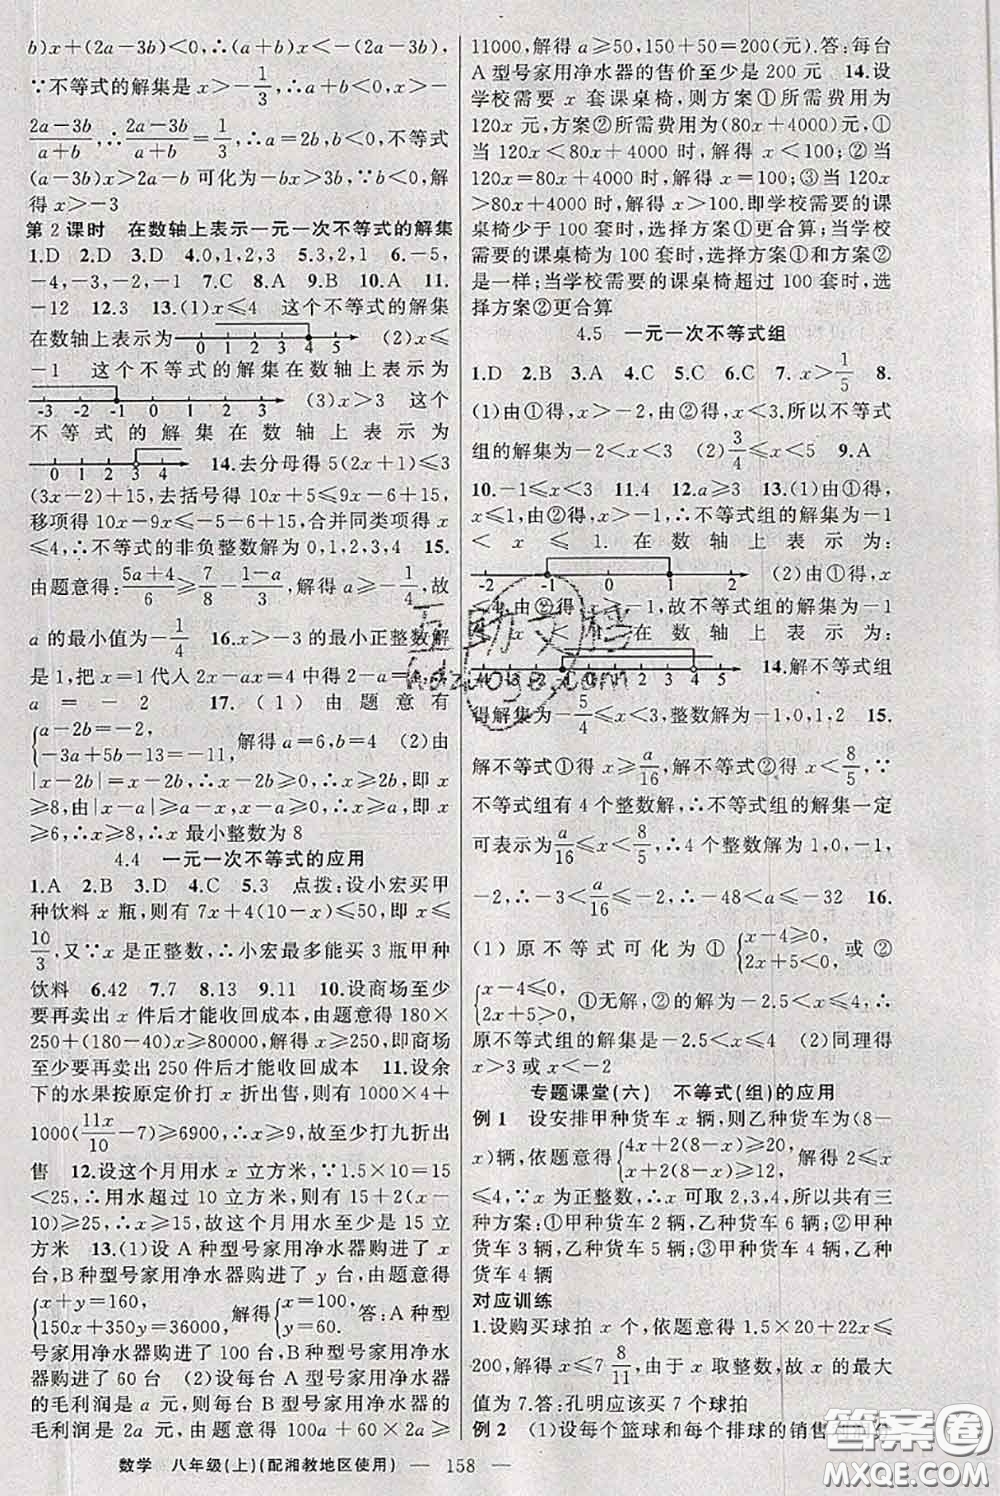 b)x+(2a-3b)<0,∴(a+b)x<-(2a-3b),
∵不等式的解集是 x>-1/3,∴a+b<0,x>-
(2a-3b)/(a+b),∴-(2a-3b)/(a+b)=-1/3,∴a=2b,b<0,不等式
(a-3b)x>2a-b 可化为-bx>3b,∵b<0,解
得 x>-3
第2课时 在数轴上表示一元一次不等式的解集
1.D 2.D 3.D 4.0,1,2 5.3,2,1 6.-5,
-4,-3,-2,-1 7.C 8.A 9.A 10.A 11.
-12 12.3 13.(1)x≤4 这个不等式的解集
在数轴上表示为 0 1 2 3 4 5 (2)x≤
-1 这个不等式的解集在数轴上表示为
-3 -2 -1 0 1 2 3 (3)x>3 这个
不等式的解集在数轴上表示为
0 1 2 3 4 14.去分母得 5(2x+1)≤3
(3x-2)+15,去括号得 10x+5≤9x-6+15,
移项得 10x-9x≤-5-6+15,合并同类项得 x
≤4,∴不等式的非负整数解为 0,1,2,3,4 15.
由题意得:(5a+4)/6≥7/8-(1-a)/3,解得 a≥-1/4,故
a 的最小值为-1/4 16.x>-3 的最小正整数解
是 1,把 x=1 代入 2x-ax=4 中得 2-a=4,
a=-2 17.(1)由题意有
{a-2b=-2,
-3a+5b-13=-11, 解得 a=6,b=4 (2)由
|x-2b|=x-2b,∴x-2b≥0,∴x≥2b,即 x
≥8,由|x-a|≥a-x,∴x-a≥0,∴x≥a,即 x
≥6,∴x≥8,∴x 最小整数为 8
4.4 一元一次不等式的应用
1.A 2.B 3.D 4.C 5.3 点拨:设小宏买甲
种饮料 x 瓶,则有 7x+4(10-x)≤50,即 x≤
10/3,又∵x 是正整数,∴小宏最多能买 3 瓶甲种
饮料 6.42 7.7 8.13 9.11 10.设商场至少
要再卖出 x 件后才能收回成本,由题意得 180×
250+(180-40)x≥80000,解得 x≥250,即商场
至少要再卖出 250 件后才能收回成本 11.设余
下的水果按原定价打 x 折出售,有 1000×4+
1000(11x/10-7)≥6900,∴x≥9,故至少打九折出
售 12.设这个月用水 x 立方米,∵1.5×10=15
<25,∴用水超过 10 立方米,则有 15+2(x-10)
≥25,∴x≥15,故这个月用水至少是 15 立
方米 13.(1)设 A 种型号家用净水器购进了 x
台,B 种型号家用净水器购进了 y 台,由题意得
{x+y=160,
150x+350y=36000, 解得{x=100,
y=60. 答:A 种型
号家用净水器购进了 100 台,B 种型号家用净水
器购进了 60 台 (2)设每台 A 型号家用净水器
的毛利润是 a 元,则每台 B 型号家用净水器的
毛利润是 2a 元,由题意得 100a+60×2a≥
11000,解得 a≥50,150+50=200(元).答:每台
A 型号家用净水器的售价至少是 200 元 14.设
学校需要 x 套课桌椅,则方案①所需费用为
120x 元,方案②所需费用为(80x+4000)元,①
当 120x<80x+4000 时,解得 x<100;②当
120x=80x+4000 时,解得 x=100;③当 120x
>80x+4000 时,解得 x>100.即学校需要的课
桌椅少于 100 套时,选择方案①更合算;当学校
需要的课桌椅为 100 套时,选择方案①和方案②
是一样;当学校需要的课桌椅超过 100 套时,选
择方案②更合算
4.5 一元一次不等式组
1.D 2.B 3.A 4.C 5.C 6.C 7.x>1/5 8.
(1)由①得,x>-2,由②得,x<3.所以不等式
组的解集为-2<x<3 (2)3/4≤x≤5 9.A
10.-1≤x<3 11.4 12.a≥3 13.(1)由①得,
x≤1,由②得,x>-1,∴不等式组的解集为-1
<x≤1.在数轴上表示为:
-2 -1 0 1 2 (2)由①得,x
<4,由②得 x>-1,故不等式组的解集为-1
<x<4.在数轴上表示为:
-4 -3 -2 -1 0 1 2 3 4 5 14.解不等式组
得解集为-5/4≤x<3,整数解为-1,0,1,2 15.
解不等式①得 x≥a/16,解不等式②得 x<8/5,∵
不等式组有 4 个整数解,∴不等式组的解集一定
可表示为 a/16≤x<8/5,∴4 个整数解为 1,0,-1,
-2,∴-3<a/16≤-2,∴-48<a≤-32 16.
(1)原不等式可化为①{x-4≥0,
2x+5<0, 或②
{x-4≤0,
2x+5>0, ①无解,②的解为-2.5<x<4,∴
原不等式组的解集为-2.5<x<4 (2)同理得
x>3 或 x<-2
专题课堂(六) 不等式(组)的应用
例1 设安排甲种货车 x 辆,则乙种货车为(8-
x)辆,依题意得{4x+2(8-x)≥20,
x+2(8-x)≥12, 解得 2≤x
≤4,∵x 为正整数,∴x 可取 2,3,4,所以共有三
种方案:①甲种货车 2 辆,乙种货车 6 辆;②甲种
货车 3 辆,乙种货车 5 辆;③甲种货车 4 辆,乙种
货车 4 辆
对应训练
1.设购买球拍 x 个,依题意得 1.5×20+22x≤
200,解得 x≤7 8/11,由于 x 取整数,故 x 的最大
值为 7.答:孔明应该买 7 个球拍
例2 (1)设每个篮球和每个排球的销售利润分
数学 八年级(上)(配湘教地区使用) — 158 —
互助文档
hdzuoye.com
答案圈
MXQE.COM